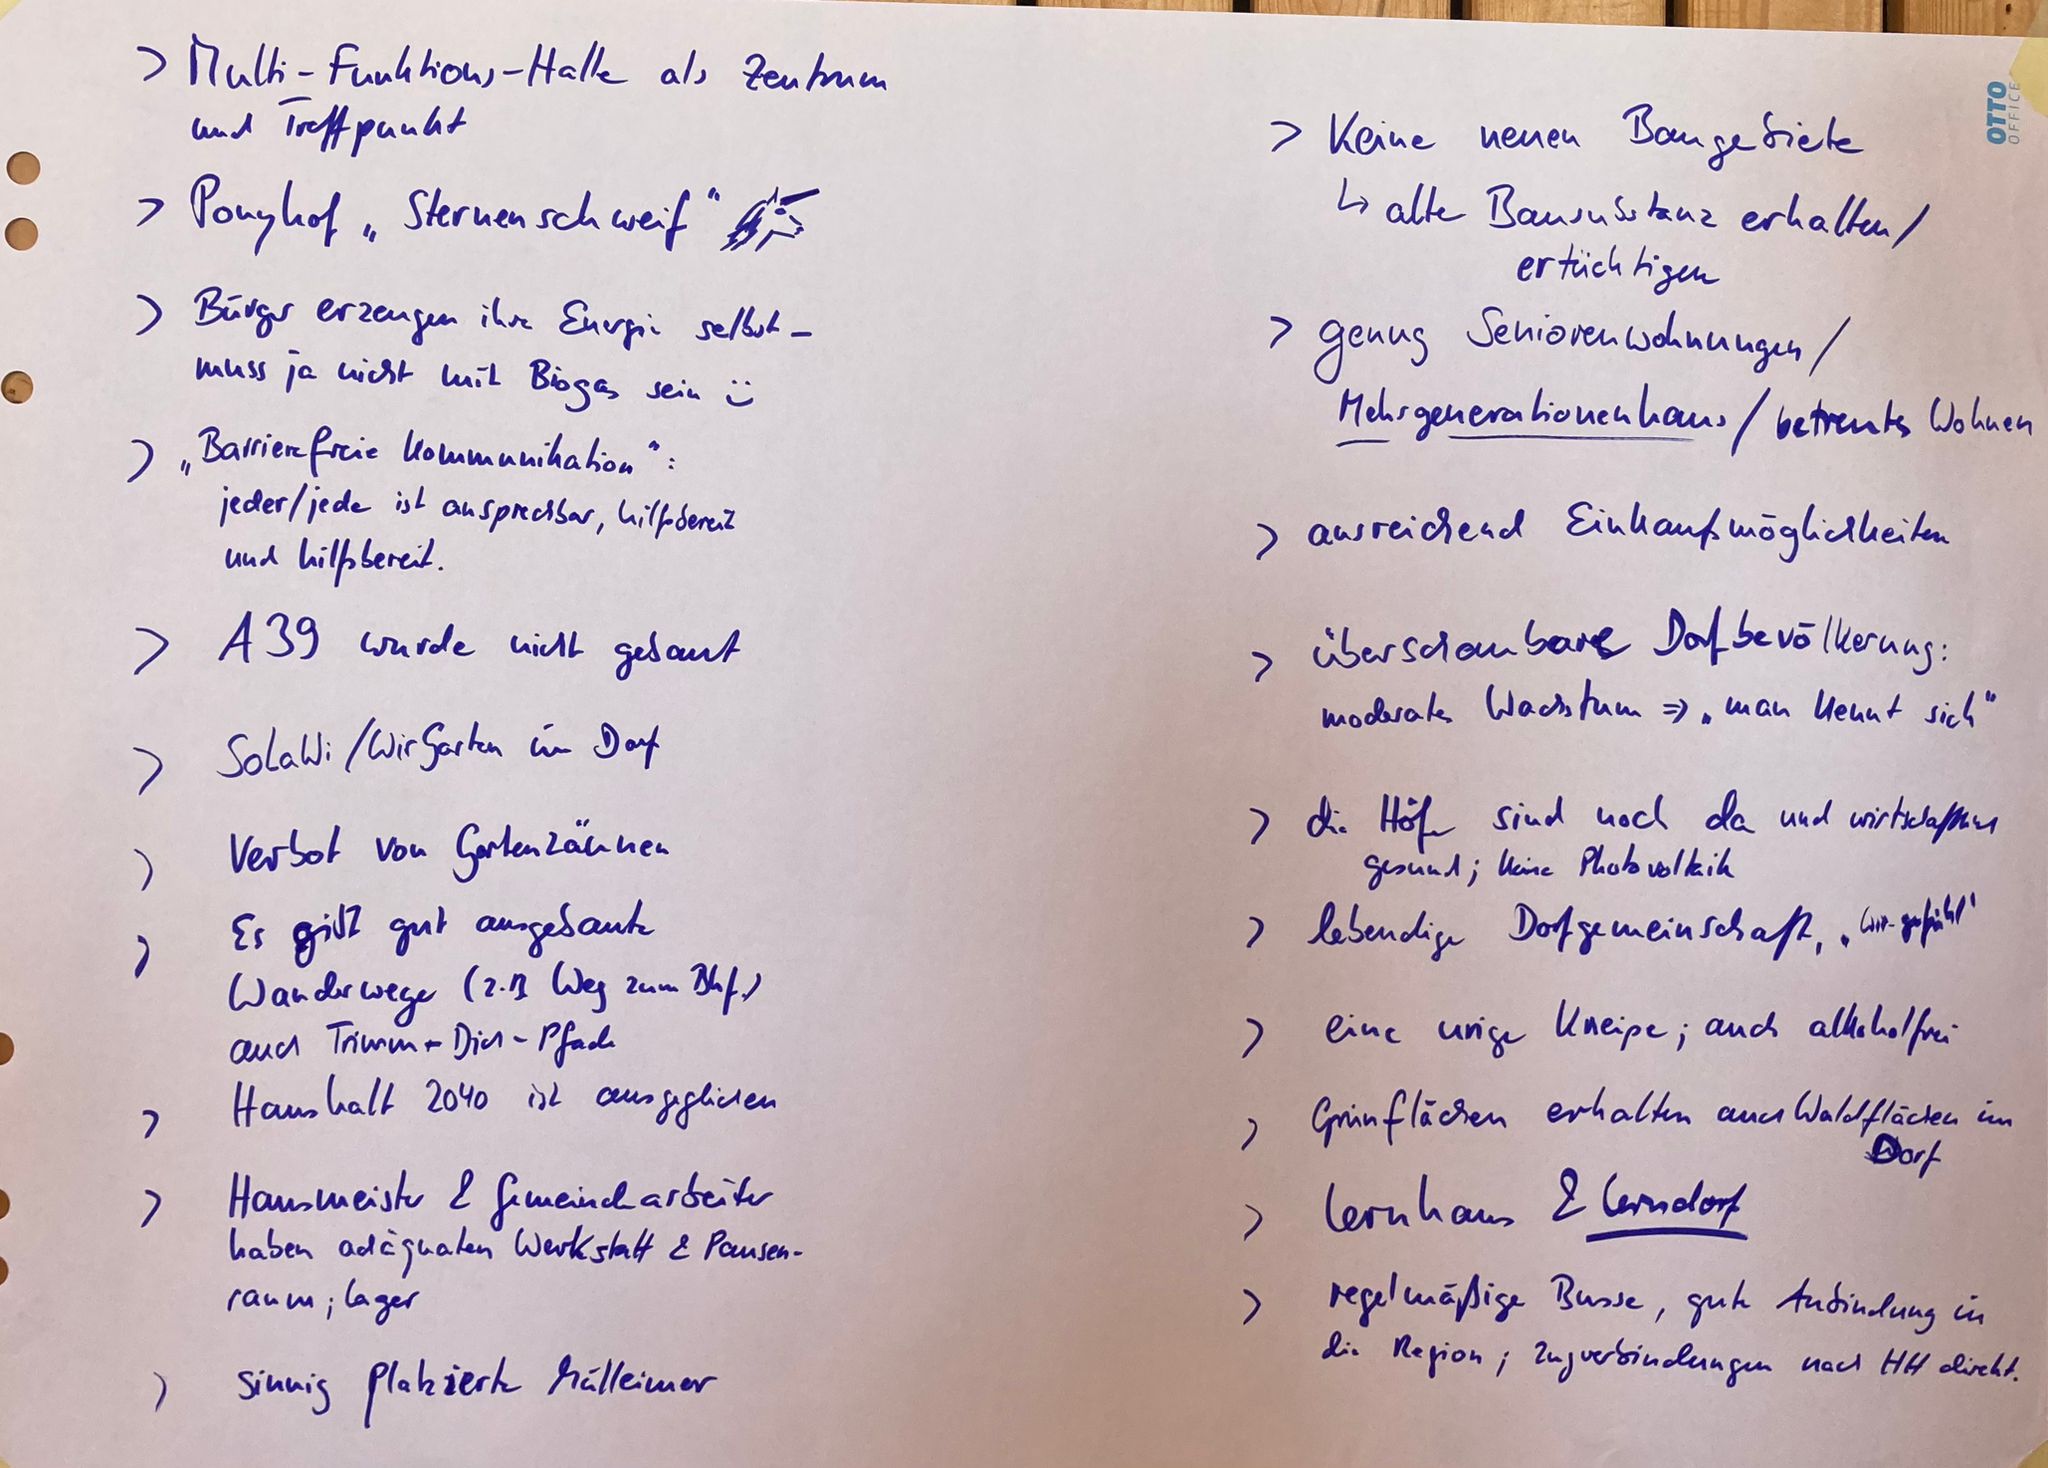 > Multi-Funktions-Halle als Zentrum
und Treffpunkt
> Ponyhof „Sternenschweif“
> Bürger erzeugen ihre Energie selbst –
muss ja nicht mit Biogas sein :)
> „Barrierefreie Kommunikation“:
jeder/jede ist ansprechbar, hilfsbereit
und hilfsbereit.
> A39 wurde nicht gebaut
> SoLaWi/WirGarten im Dorf
> Verbot von Gartenzäunen
> Es gibt gut ausgebaute
Wanderwege (z.B. Weg zum Bhf.)
auch Trimm-Dich-Pfade
> Haushalt 2040 ist ausgeglichen
> Hausmeister & Gemeindearbeiter
haben adäquaten Werkstatt & Pausen-
raum; Lager
> sinnig platzierte Mülleimer
OTTO
OFFICE
> Keine neuen Baugebiete
↳ alte Bausubstanz erhalten/
ertüchtigen
> genug Seniorenwohnungen/
Mehrgenerationenhaus/betreutes Wohnen
> ausreichend Einkaufsmöglichkeiten
> überschaubare Dorfbevölkerung:
moderates Wachstum => „man kennt sich“
> die Höfe sind noch da und wirtschaften
gesund; keine Photovoltaik
> lebendige Dorfgemeinschaft, „Wir-gefühl“
> eine urige Kneipe; auch alkoholfrei
> Grünflächen erhalten auch Waldflächen im
Dorf
> Lernhaus & Lerndorf
> regelmäßige Busse, gute Anbindung in
die Region; Zugverbindungen nach HH direkt.